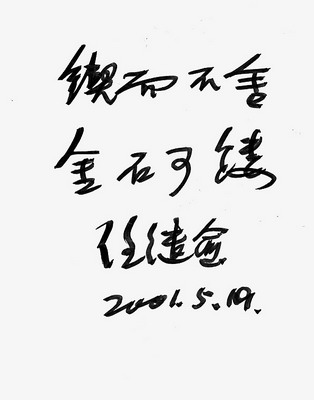 锲而不舍
金石可镂
任继愈
2001.5.19.